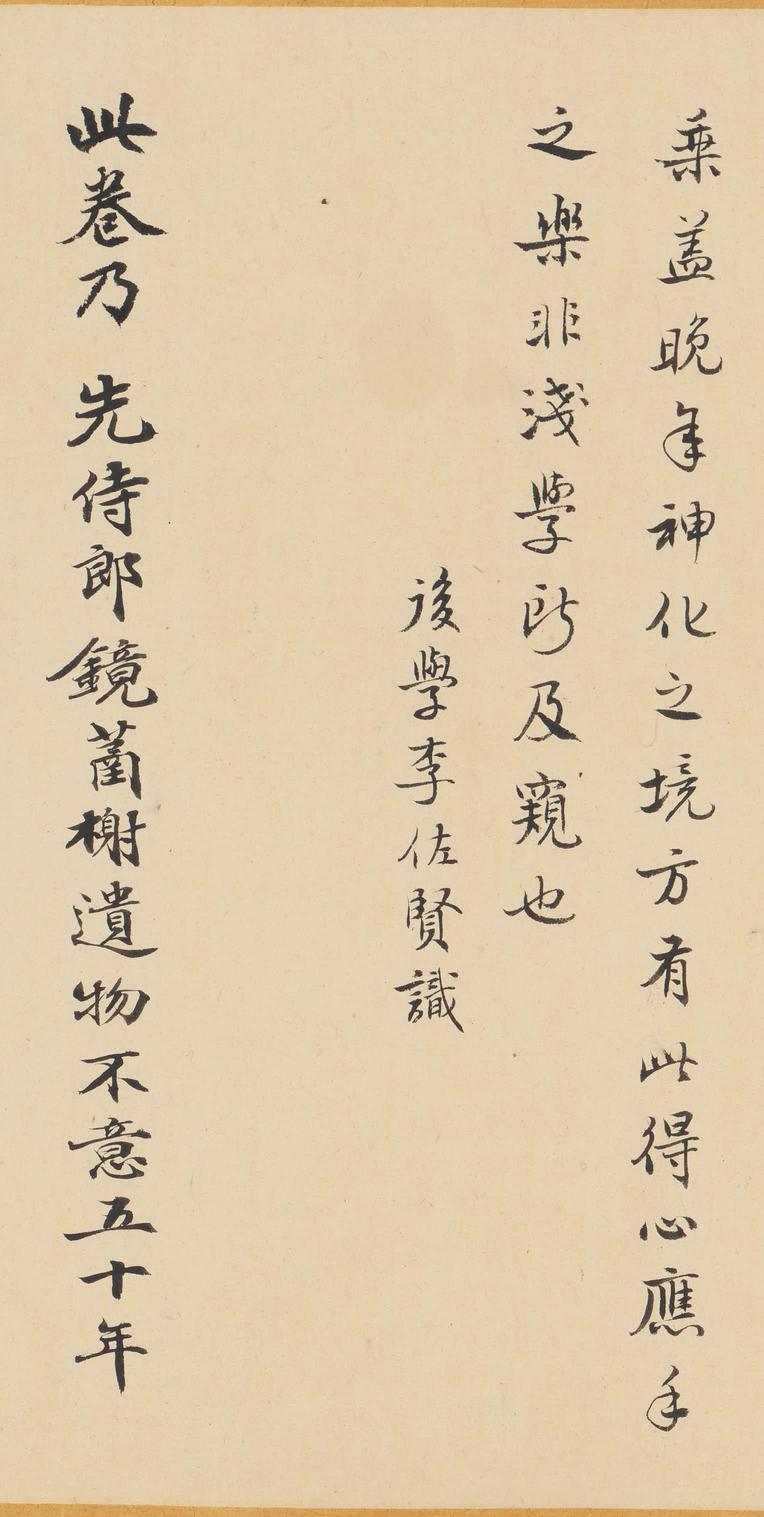 乗盖晚年神化之境方有此得心應手
之樂非淺學所及窺也
後學李佐賢識
此卷乃 先侍郎鏡菡榭遺物不意五十年